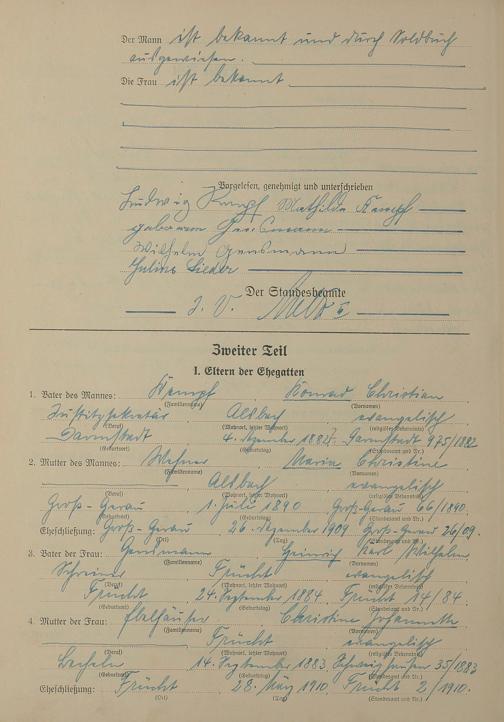 Der Mann ist bekannt und durch Soldbuch
ausgewiesen.
Die Frau ist bekannt
Vorgelesen, genehmigt und unterschrieben
Ludwig Kempf Mathilde Kempf
geborene Gensmann
Wilhelm Gensmann
Julius Lieder
Der Standesbeamte
J. V.
Zweiter Teil
I. Eltern der Ehegatten
1. Vater des Mannes: Kempf Konrad Christian
(Familienname) (Vornamen)
Justizsekretär Alsbach evangelisch
(Beruf) (Wohnort, letzter Wohnort) (religiöses Bekenntnis)
Darmstadt 4. Dezember 1882 Darmstadt 975/1882
(Geburtsort) (Geburtstag) (Standesamt und Nr.)
2. Mutter des Mannes: Wehner Marie Christine
(Familienname) (Vornamen)
Alsbach evangelisch
(Beruf) (Wohnort, letzter Wohnort) (religiöses Bekenntnis)
Groß-Gerau 1. Juli 1890 Groß-Gerau 66/1890.
(Geburtsort) (Geburtstag) (Standesamt und Nr.)
Eheschließung: Groß-Gerau 26. Dezember 1909 Groß-Gerau 26/09.
(Ort) (Tag) (Standesamt und Nr.)
3. Vater der Frau: Gensmann Heinrich Karl Wilhelm
(Familienname) (Vornamen)
Schreiner Frücht evangelisch
(Beruf) (Wohnort, letzter Wohnort) (religiöses Bekenntnis)
Frücht 24. September 1884 Frücht 14/84.
(Geburtsort) (Geburtstag) (Standesamt und Nr.)
4. Mutter der Frau: Christine Johannette
(Familienname) (Vornamen)
Frücht evangelisch
(Beruf) (Wohnort, letzter Wohnort) (religiöses Bekenntnis)
14. September 1883 Schweighausen 35/1883
(Geburtsort) (Geburtstag) (Standesamt und Nr.)
Eheschließung: Frücht 28. März 1910 Frücht 2/1910.
(Ort) (Tag) (Standesamt und Nr.)